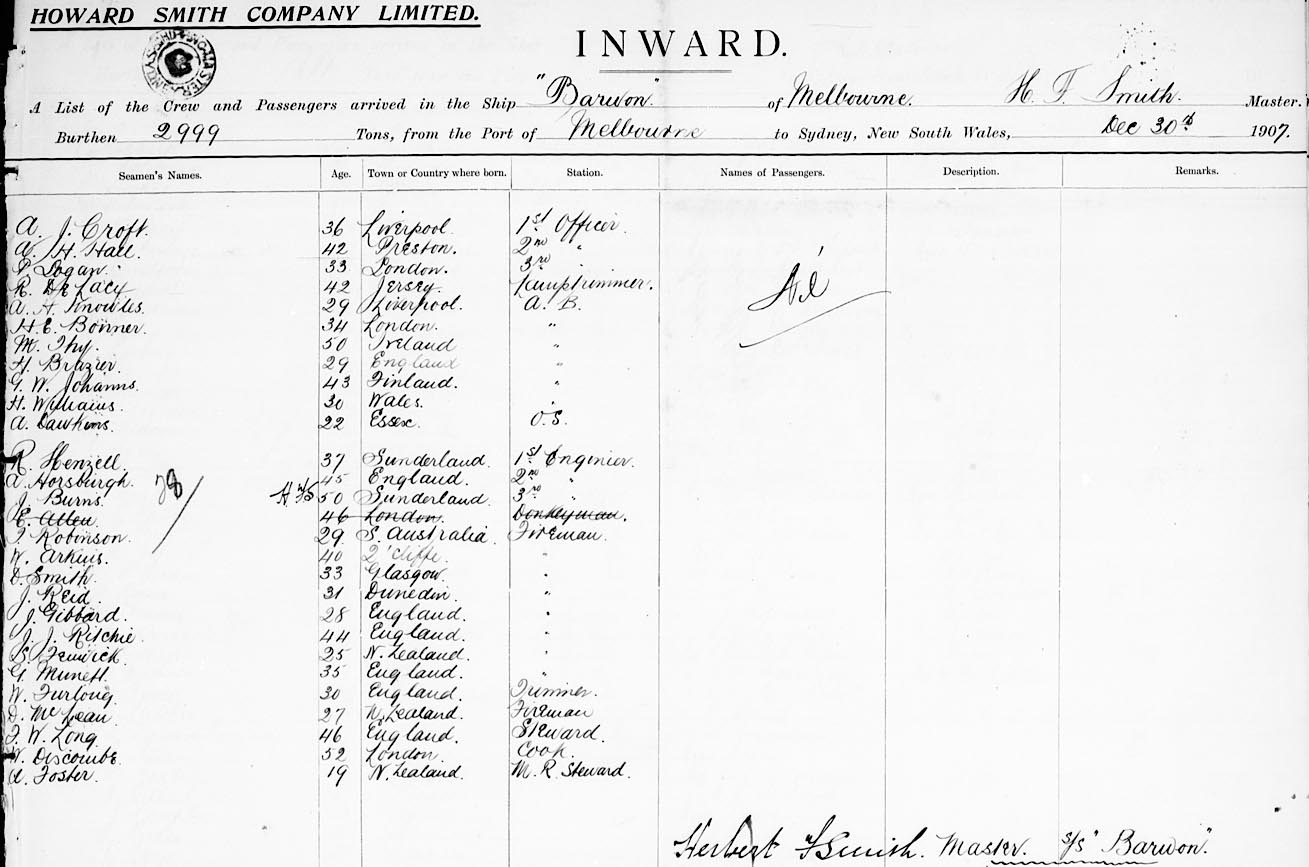 HOWARD SMITH COMPANY LIMITED.
INWARD.
A List of the Crew and Passengers arrived in the Ship "Barwon" of Melbourne. H. F. Smith. Master.
Burthen 2999 Tons, from the Port of Melbourne to Sydney, New South Wales, Dec 30th 1907.
Seamen's Names. Age. Town or Country where born. Station. Names of Passengers. Description. Remarks.
A. J. Croft. 36 Liverpool. 1st Officer.
A. H. Hall. 42 Preston. 2nd "
P Logan. 33 London. 3rd "
R. De Lacy 42 Jersey. Lamptrimmer.
A. H. Knowles. 29 Liverpool. A. B.
H. E. Bonner. 34 London. "
M. Thy. 50 Ireland "
H. Brazier. 29 England "
G. W. Johanns. 43 Finland. "
H. Williams. 30 Wales. "
A. Dawkins. 22 Essex. O.S.
R. Henzell. 37 Sunderland. 1st Enginier.
A. Horsburgh. 45 England. 2nd "
J. Burns. 50 Sunderland. 3rd "
E. Allen. 46 London. Donkeyman.
Robinson. 29 S. Australia. Fireman.
W. Arkins. 40 Q'cliffe. "
D. Smith. 33 Glasgow. "
J. Reid. 31 Dunedin. "
J. Gibbard. 28 England. "
J. J. Ritchie 44 England. "
Fenwick. 25 N. Zealand. "
G. Munett. 35 England. "
W. Furlong. 30 England. Trimmer.
D. McLean. 27 N. Zealand. Fireman
W. Long. 46 England. Steward.
W. Discombe. 52 London. Cook.
Foster. 19 N. Zealand. M. R. Steward.
Nil
28
Herbert F Smith. Master. s/s "Barwon"